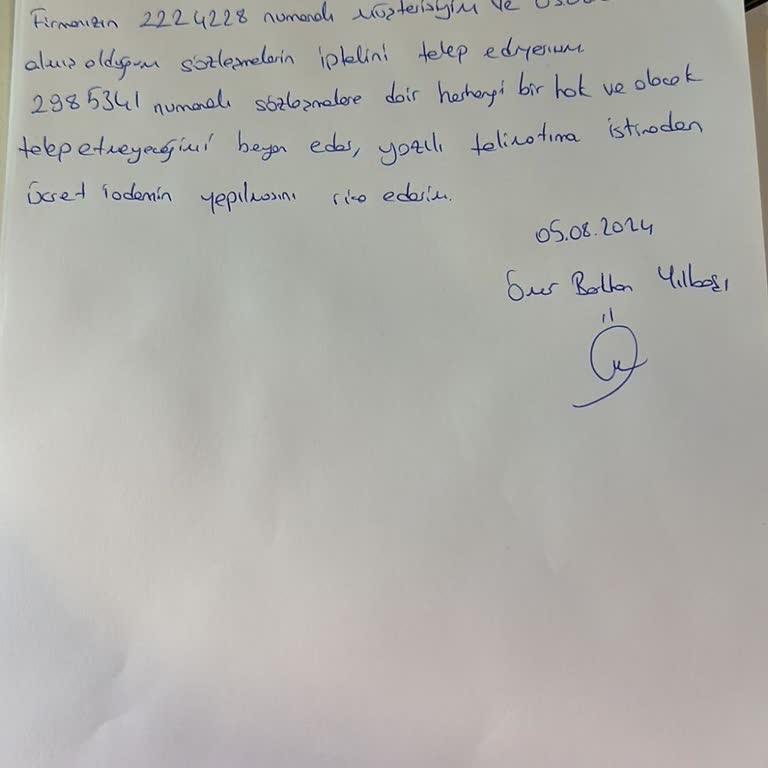 Firmanızın 2224228 numaralı müşterisiyim ve
almış olduğum sözleşmelerin iptalini talep ediyorum
2985341 numaralı sözleşmelere dair herhangi bir hak ve alacak
talep etmeyeceğimi beyan eder, yazılı talimatıma istinaden
ücret iadenin yapılmasını rica ederim.
05.08.2024
Ömer Balkan Yılbaşı